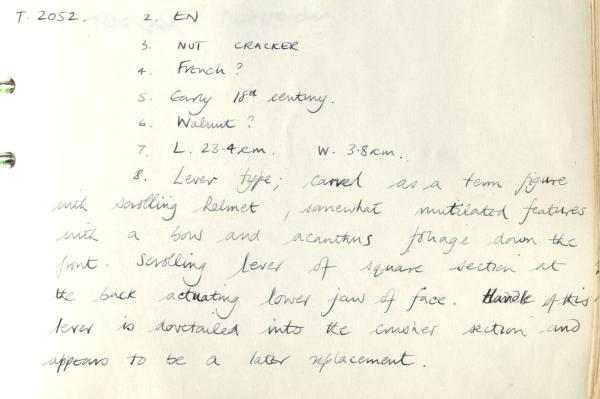 T. 2052. 2. EN
3. NUT CRACKER
4. French?
5. Early 18th century.
6. Walnut?
7. L. 23.4cm. W. 3.8cm.
8. Lever type; carved as a term figure
with scrolling helmet, somewhat mutilated features
with a bow and acanthus foliage down the
front. Scrolling lever of square section at
the back actuating lower jaw of face. Handle of this
lever is dovetailed into the crusher section and
appears to be a later replacement.